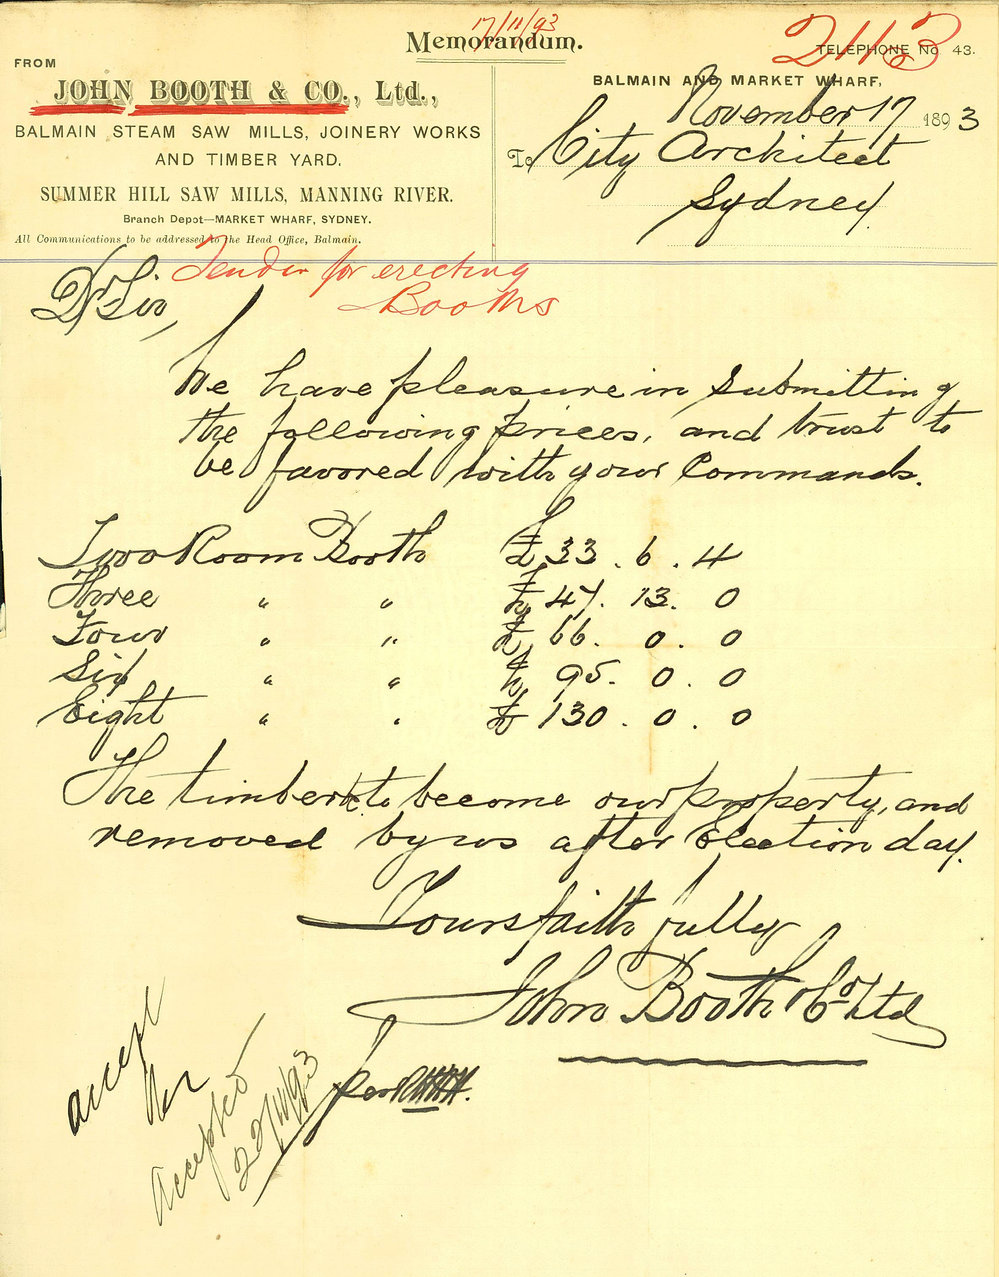 17/11/93
Memorandum.
2113
TELEPHONE No 43.
FROM
JOHN BOOTH & CO., Ltd.,
BALMAIN STEAM SAW MILLS, JOINERY WORKS
AND TIMBER YARD.
SUMMER HILL SAW MILLS, MANNING RIVER.
Branch Depot—MARKET WHARF, SYDNEY.
All Communications to be addressed to the Head Office, Balmain.
BALMAIN AND MARKET WHARF,
November 17 1893
To City Architect
Sydney
Tender for erecting
Booths
Dr Sir,
We have pleasure in submitting
the following prices, and trust to
be favored with your Commands.
Two Room Booth £ 33 . 6 . 4
Three " " £ 47 . 13 . 0
Four " " £ 66 . 0 . 0
Six " " £ 95 . 0 . 0
Eight " " £ 130 . 0 . 0
The timber to become our property, and
removed by us after Election day.
Yours faithfully
John Booth & Co Ltd
per
accept
Accepted
22/11/93